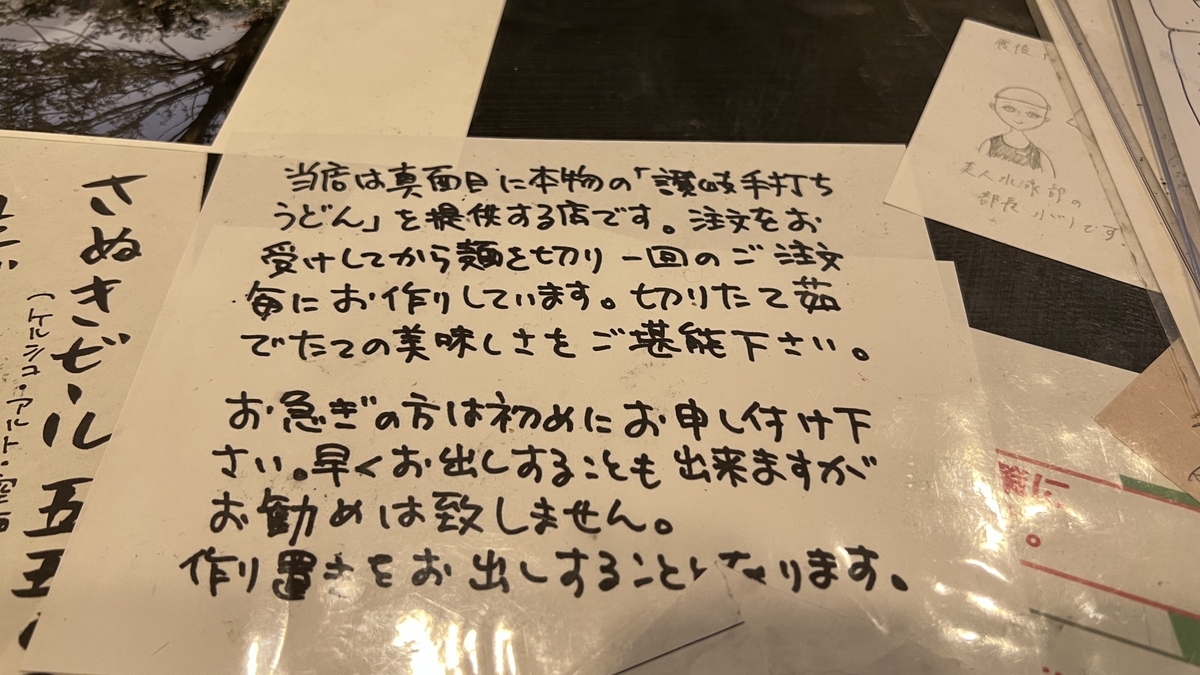 当店は真面目に本物の「讃岐手打ち
うどん」を提供する店です。注文をお
受けしてから麺を切り一回のご注文
毎にお作りしています。切りたて茹
でたての美味しさをご堪能下さい。
お急ぎの方は初めにお申し付け下
さい。早くお出しすることも出来ますが
お勧めは致しません。
作り置きをお出しすることになります。
さぬきビール 五五
(ケルシュ・アルト・
美人水泳部の
部長
です。